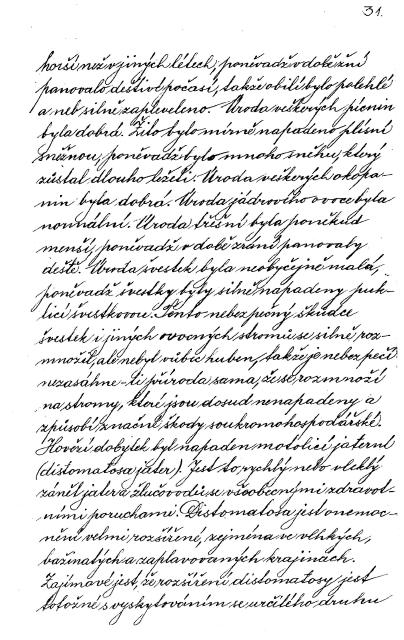 31.
horší než v jiných létech, poněvadž v době žní
panovalo deštivé počasí, takže obilí bylo polehlé
a neb silně zapleveleno. Úroda veškerých pícnin
byla dobrá. Žito bylo mírně napadeno plísní
sněžnou, poněvadž bylo mnoho sněhu, který
zůstal dlouho ležeti. Úroda veškerých okopa-
nin byla dobrá. Úroda jádrového ovoce byla
normální. Úroda třešní byla poněkud
menší, poněvadž v době zrání panovaly
deště. Úroda švestek byla neobyčejně malá,
poněvadž švestky byly silně napadeny puk-
licí švestkovou. Tento nebezpečný škůdce
švestek i jiných ovocných stromů se silně roz-
množil, ale nebyl vůbec huben, takže je nebezpečí
nezasáhne-li příroda sama, že se rozmnoží
na stromy, které jsou dosud nenapadeny a
způsobí značné škody soukromohospodářské.
Hovězí dobytek byl napaden motolicí jaterní
(distomatosa jater). Jest to rychlý nebo vleklý
zánět jater a žlučovodů se všeobecnými zdravot-
ními poruchami. Distomatosa jest onemoc-
nění velmi rozšířené, zejména ve vlhkých,
bažinatých a zaplavovaných krajinách.
Zajímavé jest, že rozšíření distomatosy jest
totožné s vyskytováním se určitého druhu